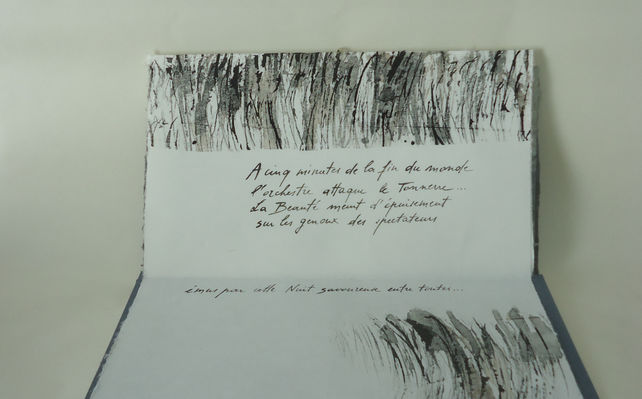 A cinq minutes de la fin du monde
l'orchestre attaque le Tonnerre...
La Beauté meurt d'épuisement
sur les genoux des spectateurs
émus par cette Nuit savoureuse entre toutes...